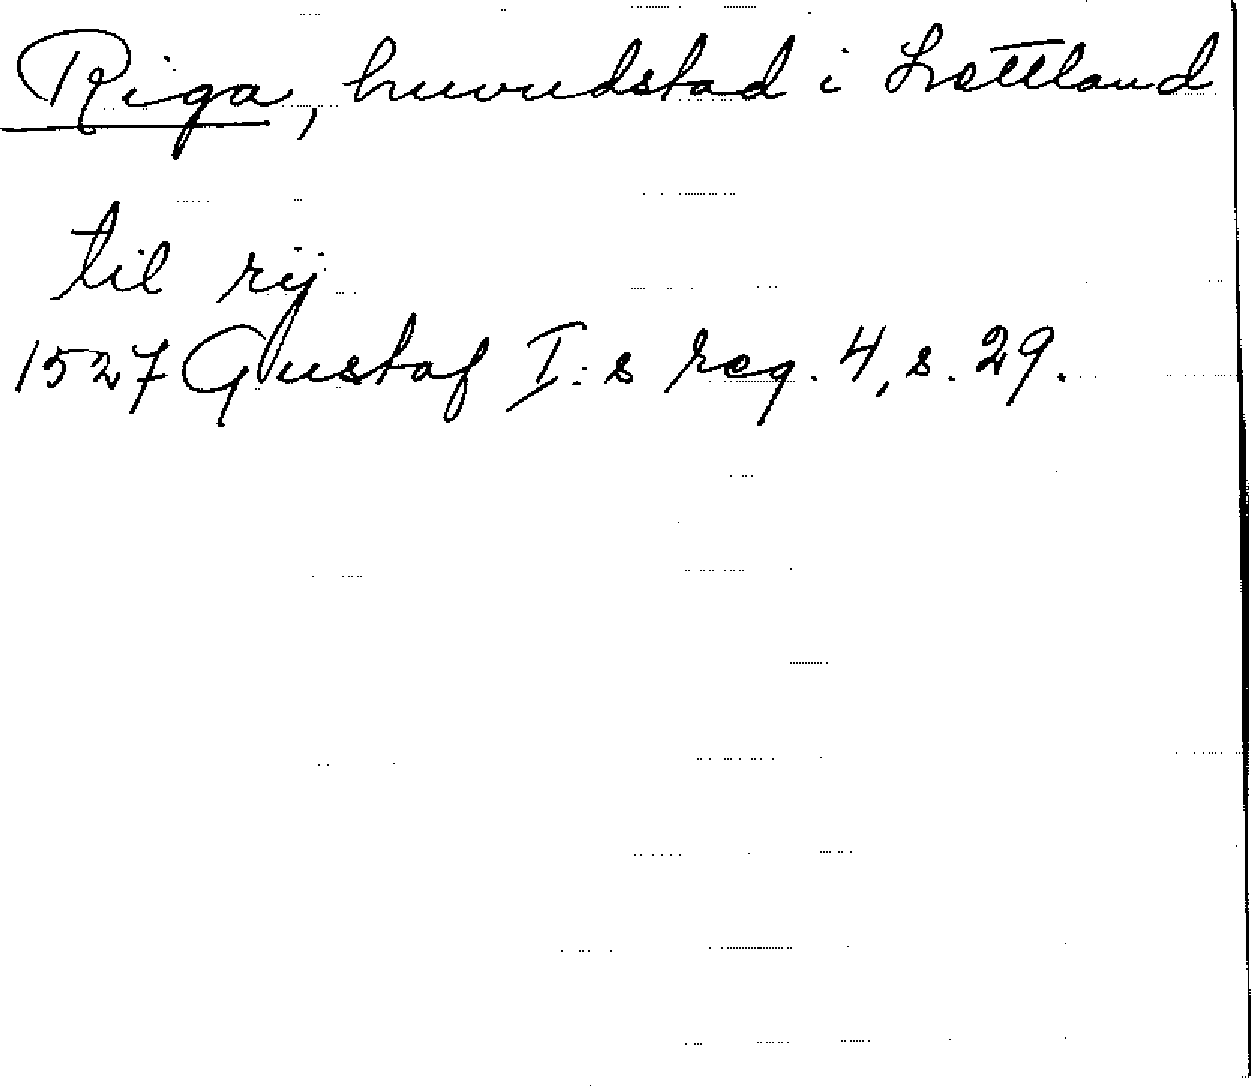 Riga, huvudstad i Lettland
til rij
1527 Gustaf I:s reg. 4, s. 29.